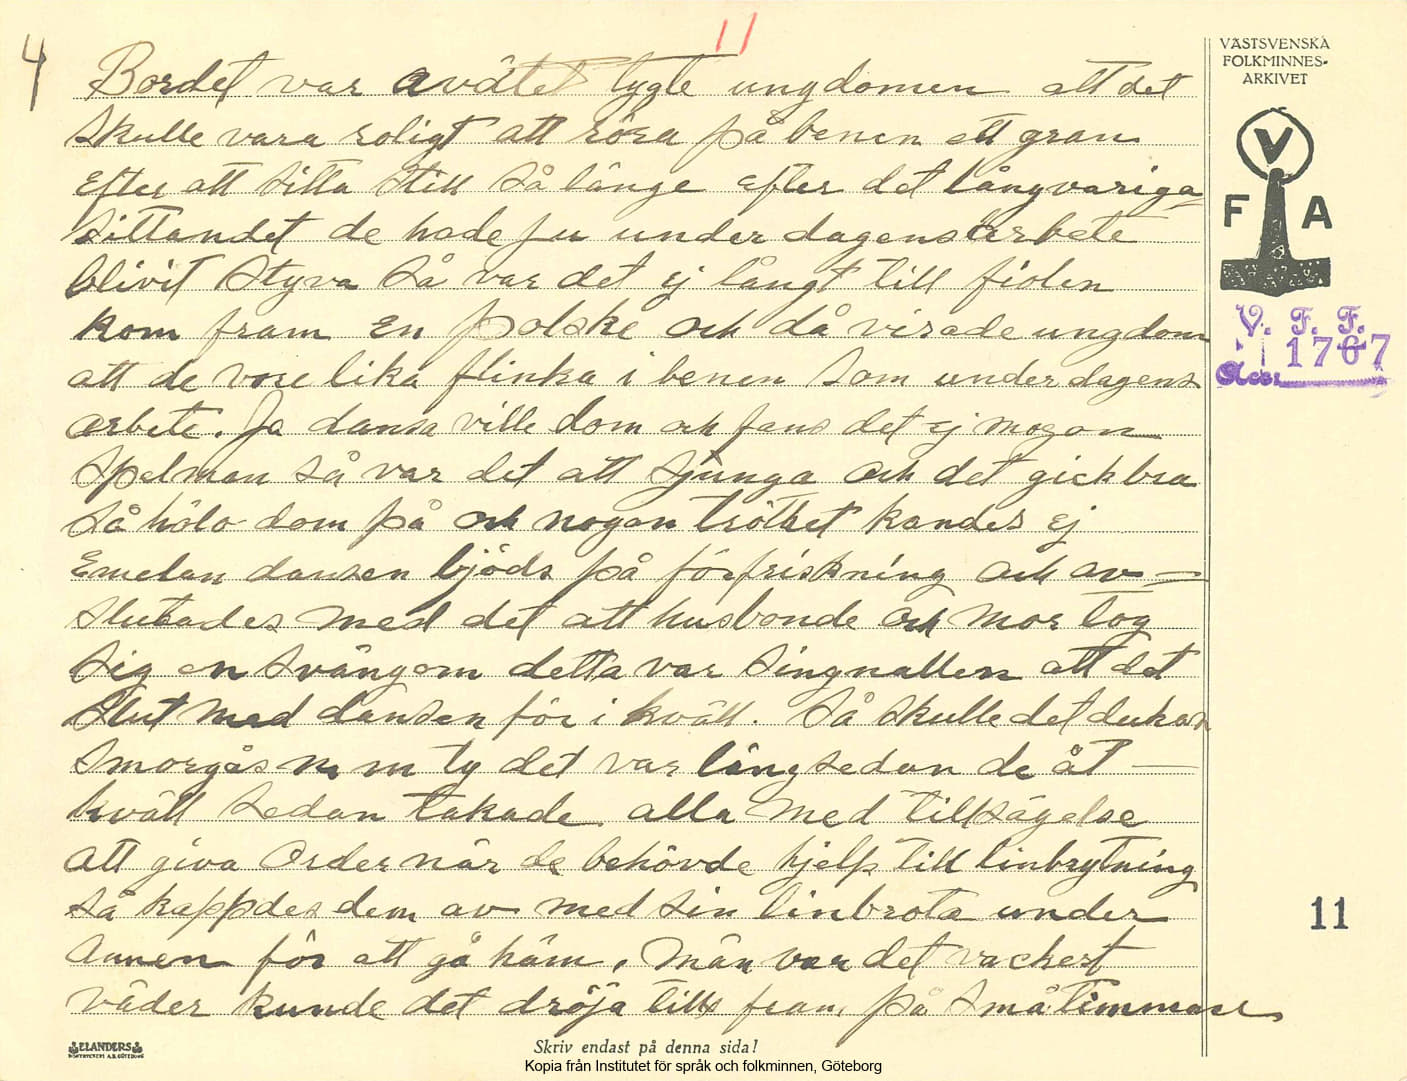 11
4
VÄSTSVENSKA
FOLKMINNES-
ARKIVET
Bordet var avätet tygte ungdomen att det
skulle vara roligt att röra på benen ett gran
efter att sitta still så länge efter det långvariga
sittandet de hade ju under dagens arbete
blivit styva så var det ej långt till fiolen
kom fram En polske och då virade ungdom
att de vore lika flinka i benen som under dagens
arbete. Ja dansa ville dom och fans det ej nogon
spelman så var det att sjunga och det gick bra
så hölo dom på och nogon tröthet kandes ej
Emelan dansen bjöds på förfriskning och av-
slutades med det att husbonde och mor tog
sig en sväng om detta var singnallen att det
slut med dansen för i kväll. Så skulle det dukas
smorgås m m ty det var läng sedan de åt —
kväll sedan takade alla med tillsägelse
att giva Order när de behövde hjelp till linbrytning
så kappdes dem av med sin linbrota under
Armen för att gå häm, män var det vackert
väder kunde det dröja tills fram på småtimmare
V
F A
V. F. F.
1767
Acc.
11
ELANDERS
BOKTRYCKERI A.B. GÖTEBORG
Skriv endast på denna sida!
Kopia från Institutet för språk och folkminnen, Göteborg